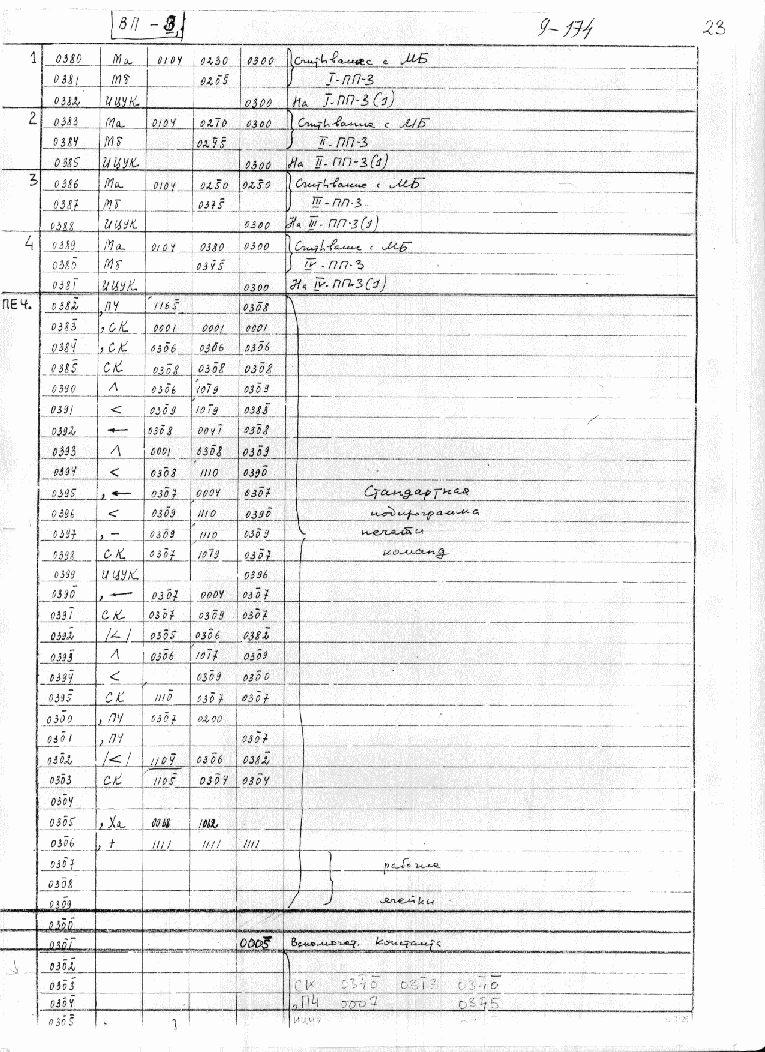 ВП - 3,1 9-174 23
1 0380 Ма 0104 0230 0300 Считывание с МБ
0381 Мб 0255 I-ПП-3
0382 ИЦУК 0300 На I-ПП-3(1)
2 0383 Ма 0104 0300 Считывание с МБ
0384 Мб II-ПП-3
0385 ИЦУК 0300 На II-ПП-3(1)
3 0386 Ма 0104 Считывание с МБ
0387 Мб III-ПП-3
0388 ИЦУК 0300 На III-ПП-3(1)
4 0389 Ма 0104 0380 0300 Считывание с МБ
0380̄ Мб IV-ПП-3
0381̄ ИЦУК 0300 На IV-ПП-3(1)
ПЕЧ. 0382̄ ,ПУ 030̄8
0383̄ ,СК 0001 0001 0001
0384̄ ,СК 030̄6 030̄6 030̄6
0385̄ СК 030̄8 030̄8 030̄8
0390 Λ 030̄6 101̄9 030̄9
0391 < 030̄9 101̄9 0383̄
0392 ← 030̄8 0041̄ 030̄8
0393 Λ 0001 030̄8 030̄9
0394 < 030̄8 1110 0390̄
0395 ,← 030̄7 0004 030̄7 Стандартная
0396 < 030̄9 1110 0390̄ подпрограмма
0397 ,- 030̄9 1110 030̄9 печати
0398 СК 030̄7 101̄9 030̄7 команд
0399 ИЦУК 0396
0390̄ ,← 030̄7 0004 030̄7
0391̄ СК 030̄7 030̄9 030̄7
0392̄ /</ 030̄5 030̄6 0382̄
0393̄ Λ 030̄6 101̄7 030̄9
0394̄ < 030̄9 030̄0
0395̄ СК 111̄0 030̄7 030̄7
030̄0 ,ПУ 030̄7 0200
030̄1 ,ПУ 030̄7
030̄2 /</ 110̄4 030̄6 0382̄
030̄3 СК 110̄5 030̄4 030̄4
030̄4
030̄5 ,Ха
030̄6 ,+ 1111 1111 1111
030̄7 рабочие
030̄8
030̄9 ячейки
030̄0̄
030̄1̄ 0005̄ Вспомогат. Константа
030̄2̄
030̄3̄ СК
030̄4̄ ,ПЧ 0007
030̄5̄